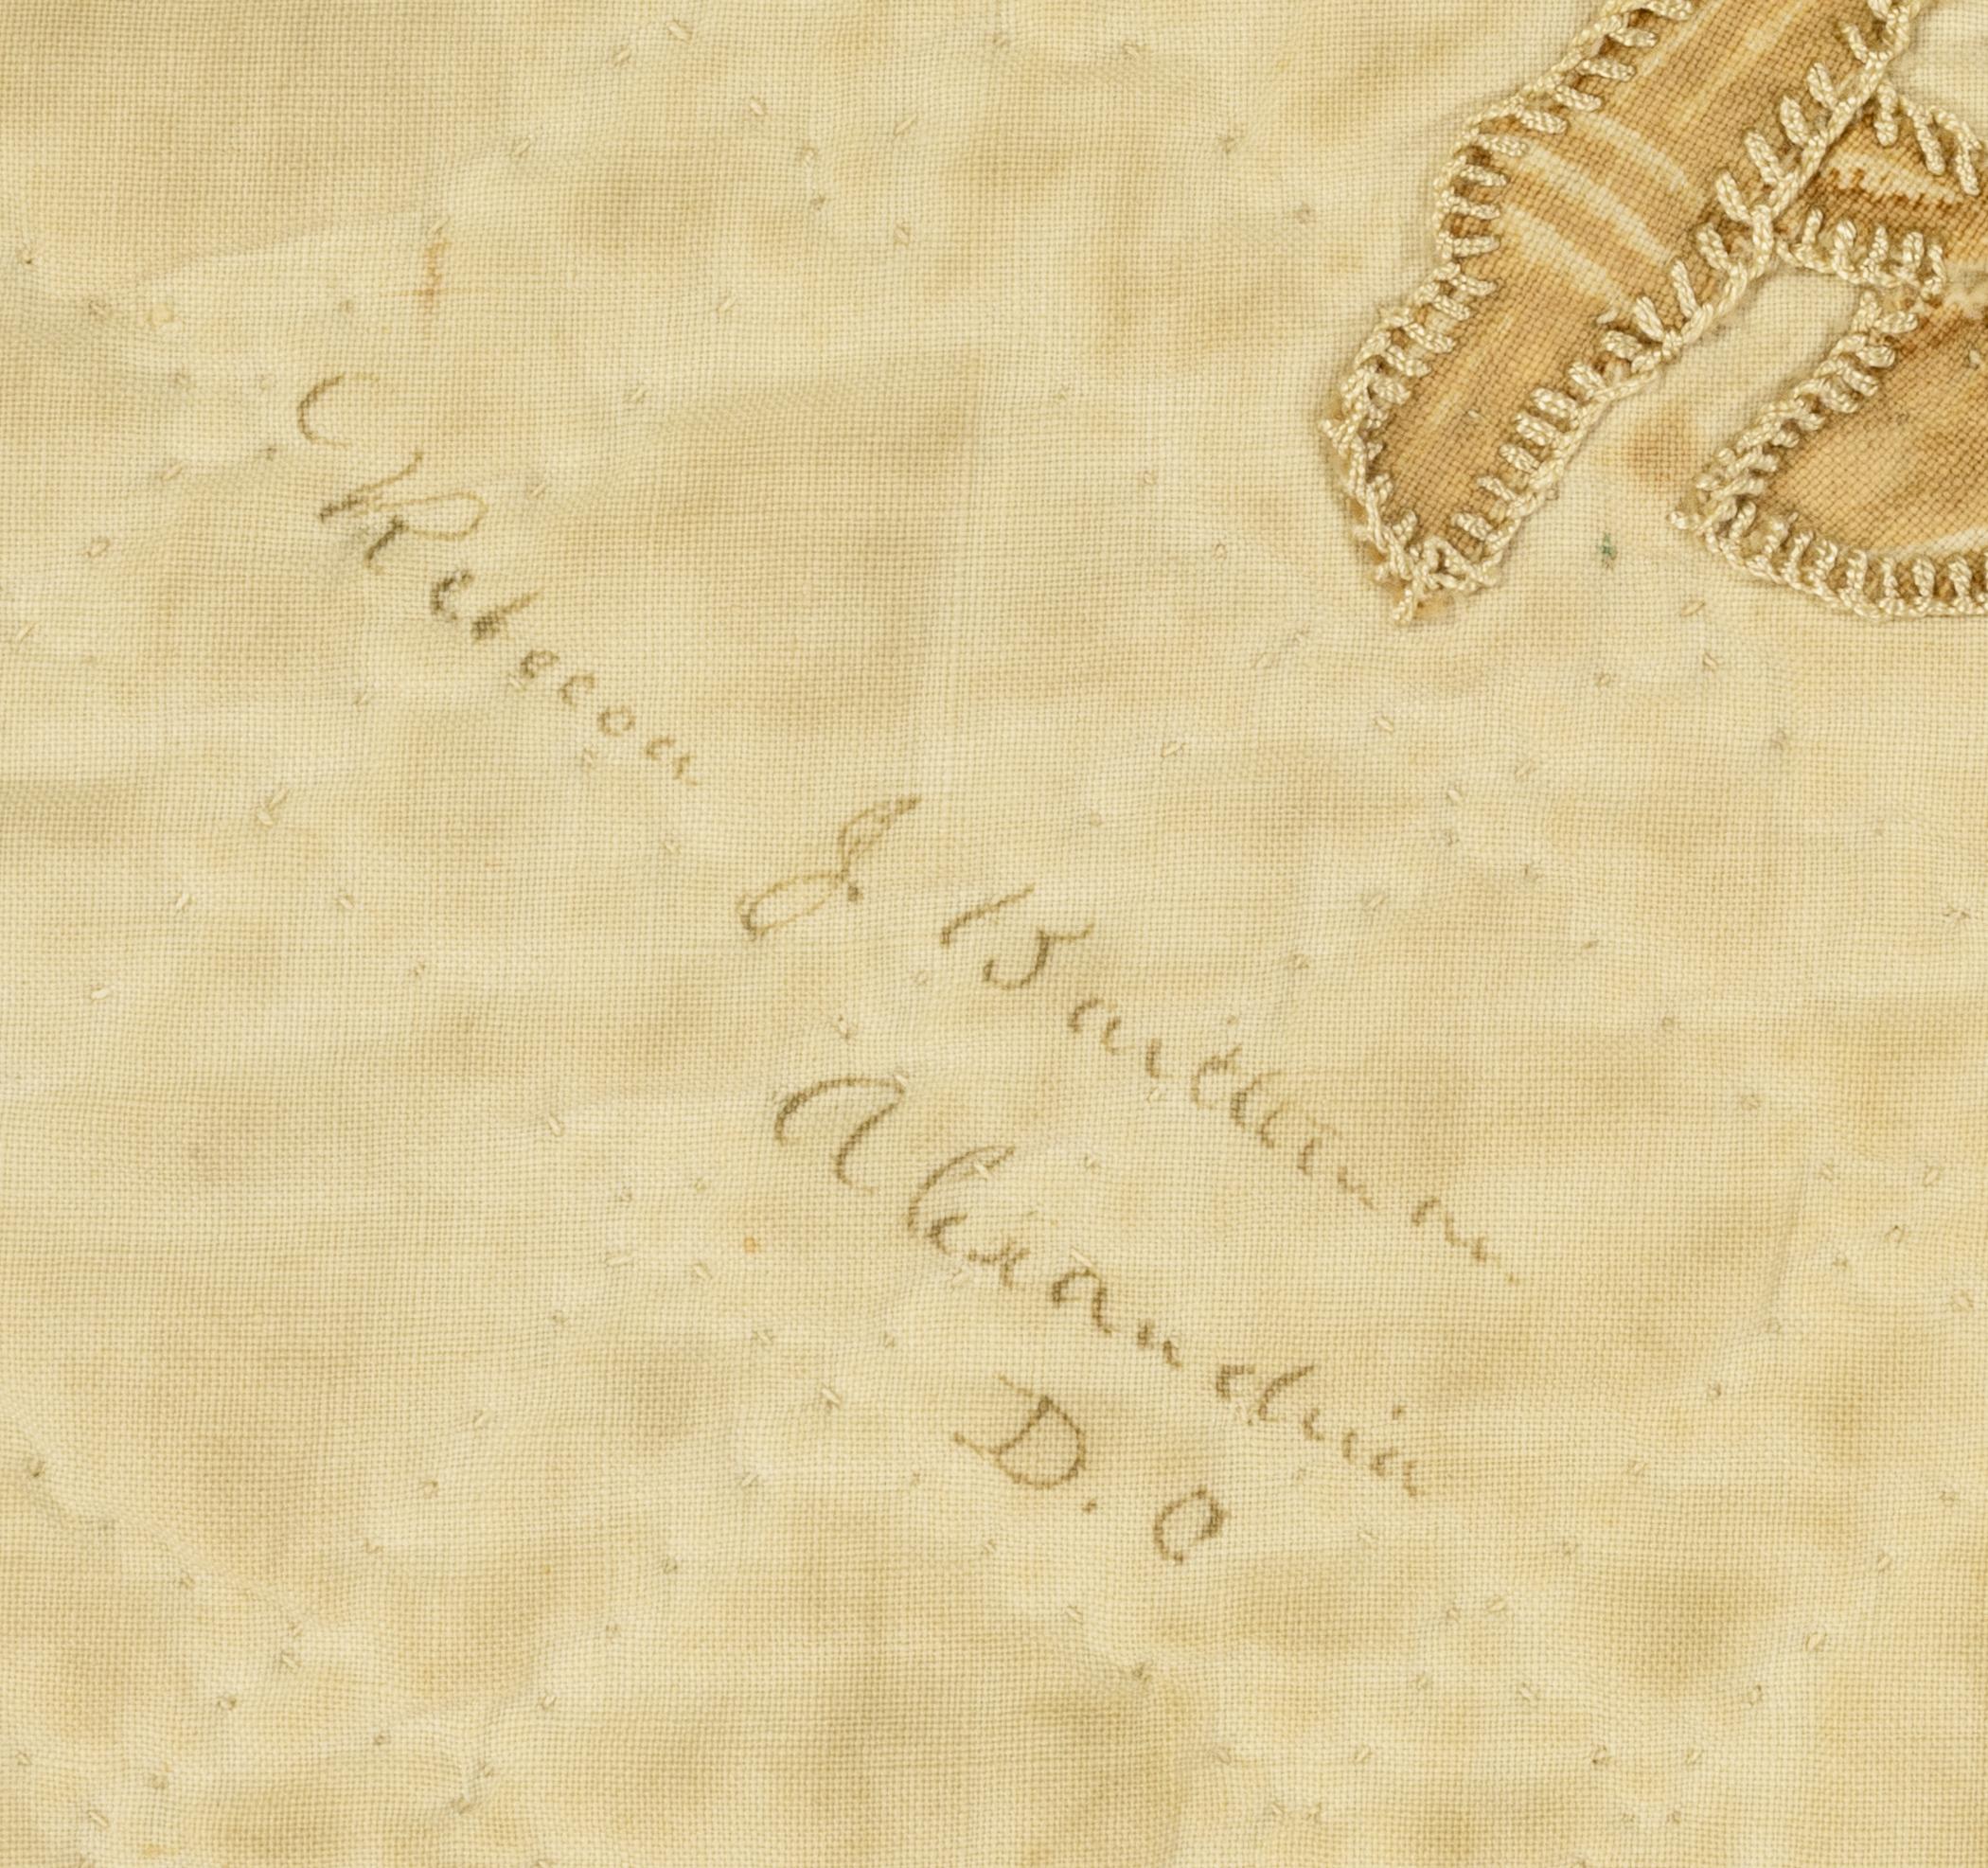 Rebecca J. Bartleman
Alexandria
D. C